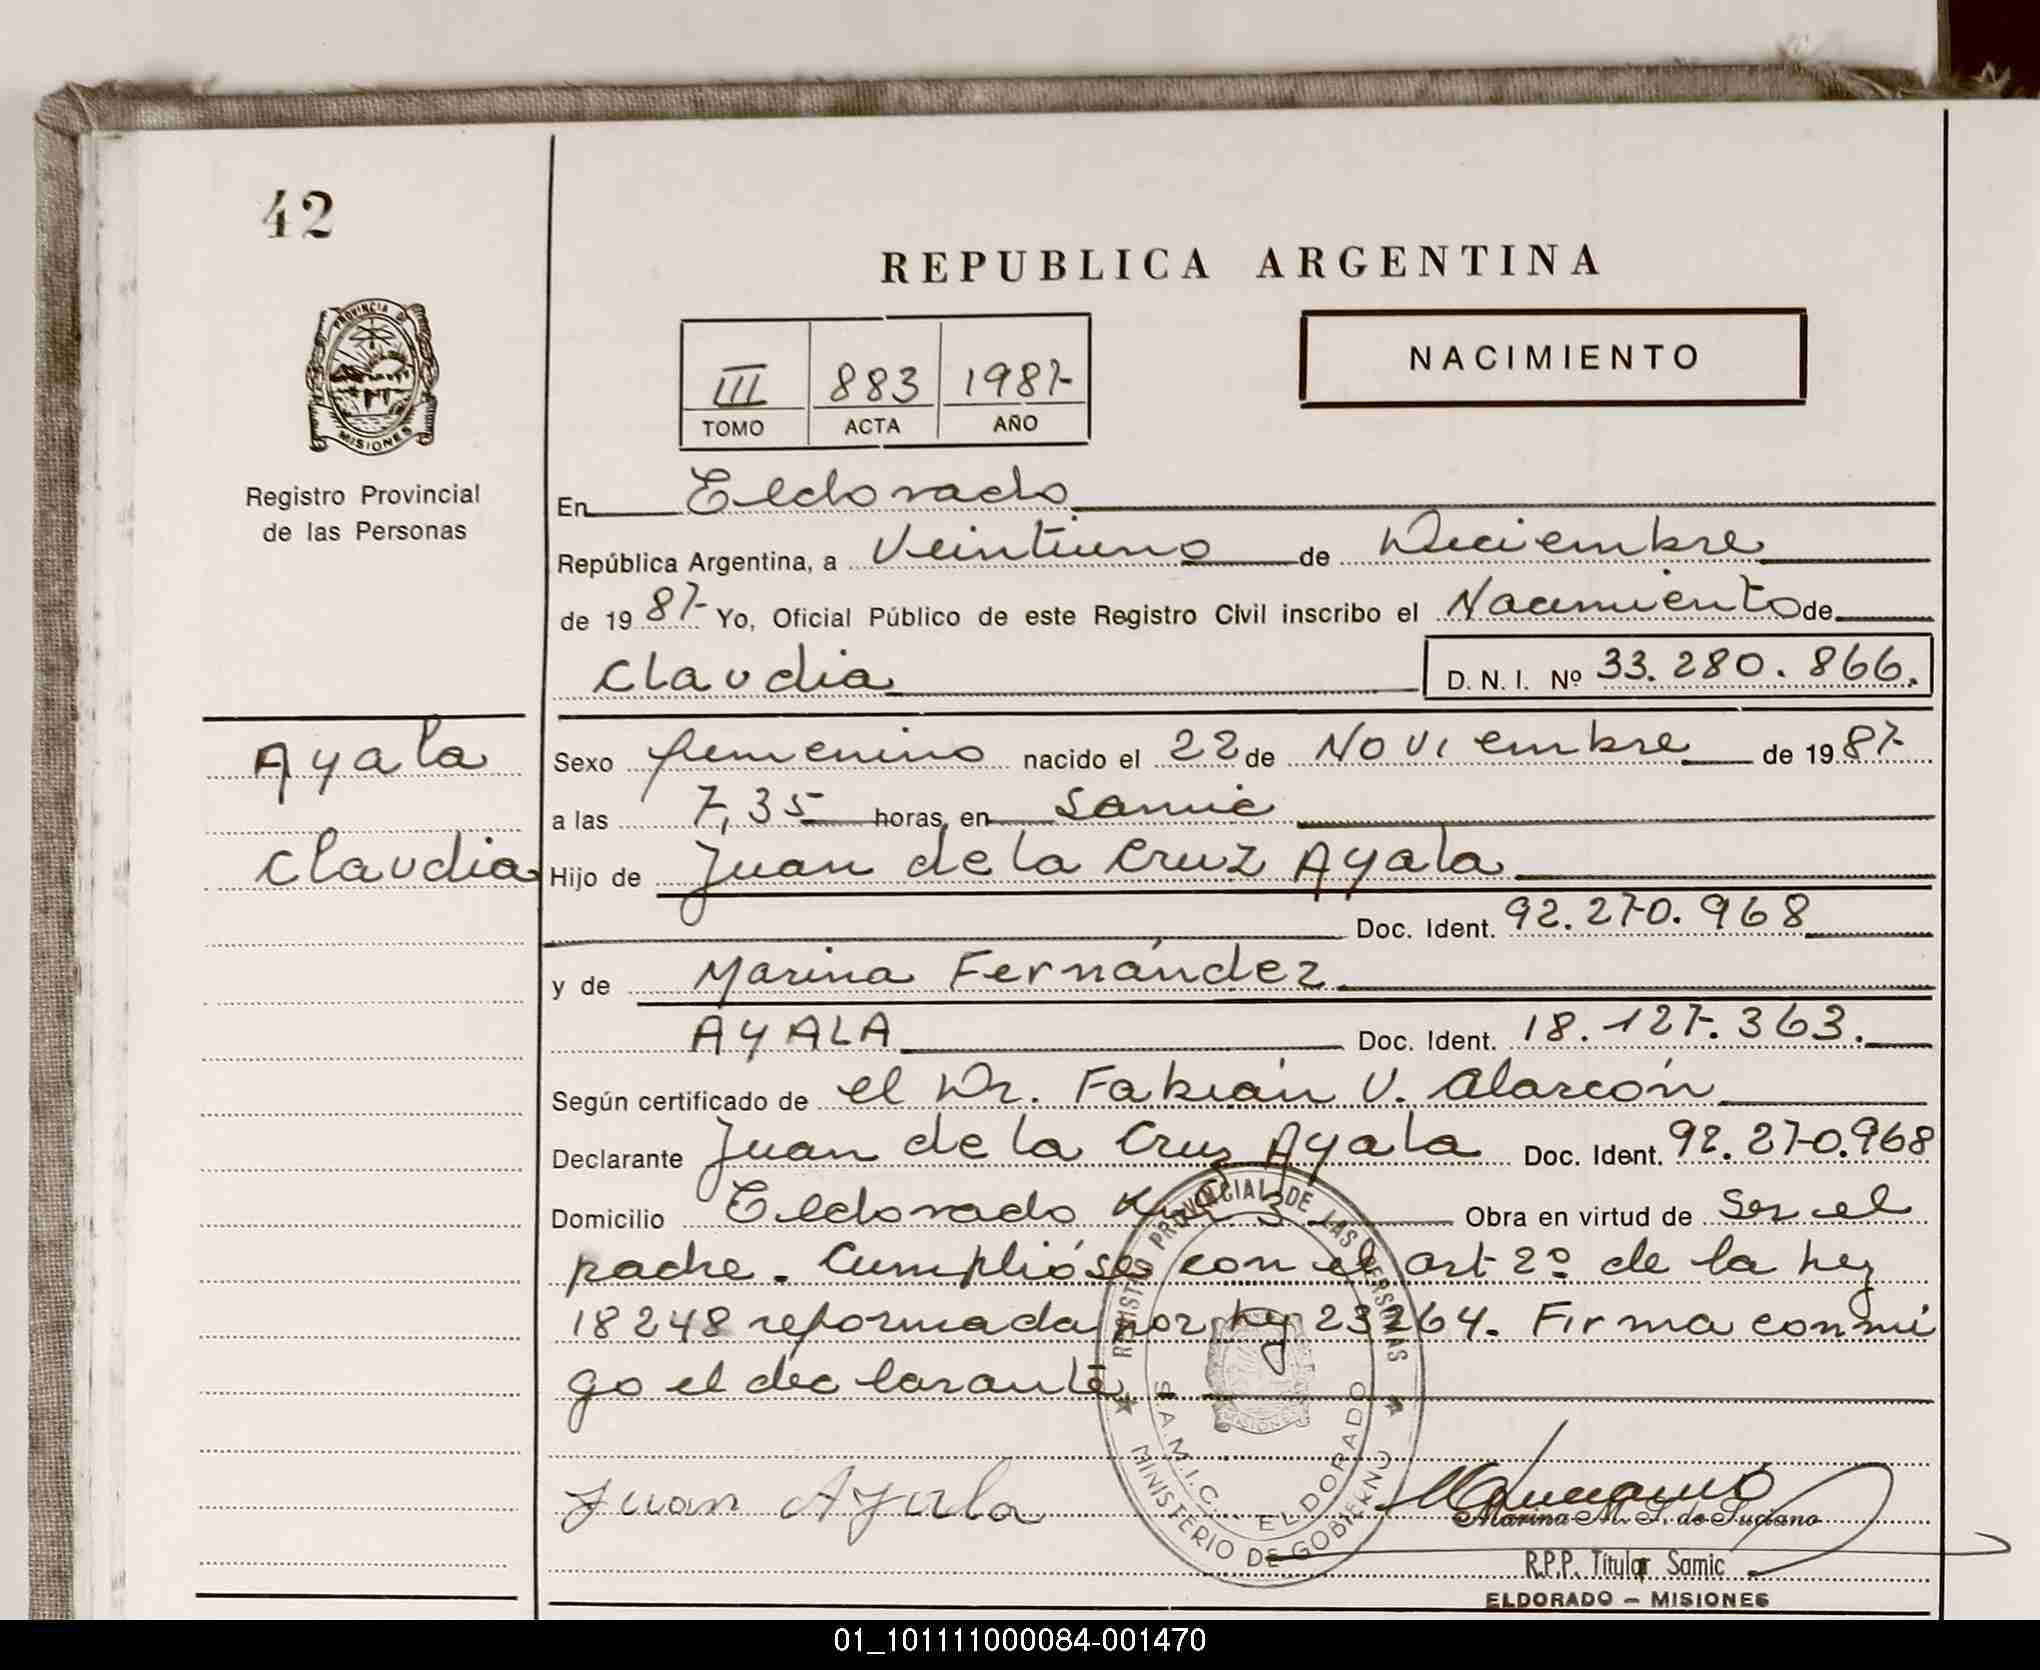 42
REPUBLICA ARGENTINA
PROVINCIA D MISIONES
NACIMIENTO
III 883 1987
TOMO ACTA AÑO
Registro Provincial
de las Personas
En Eldorado
República Argentina, a Veintiuno de Diciembre
de 1987 Yo, Oficial Público de este Registro Civil inscribo el Nacimiento de
Claudia D. N. I. Nº 33.280.866.
Ayala
Claudia
Sexo femenino nacido el 22 de Noviembre de 1987
a las 7,35 horas, en Samic
Hijo de Juan de la Cruz Ayala
Doc. Ident. 92.270.968
y de Marina Fernández
AYALA Doc. Ident. 18.127.363.
Según certificado de el Dr. Fabián V. Alarcón
Declarante Juan de la Cruz Ayala Doc. Ident. 92.270.968
Domicilio Eldorado Km 3 Obra en virtud de Ser el
padre. Cumplióse con el art 2º de la ley
18248 reformada por ley 23264. Firma conmi
go el declarante.
REGISTRO PROVINCIAL DE LAS PERSONAS
S.A.M.I.C. ELDORADO
MINISTERIO DE GOBIERNO
MISIONES
Juan Ayala
Marina M. S. de Luciano
R.P.P. Titular Samic
ELDORADO - MISIONES
01_101111000084-001470